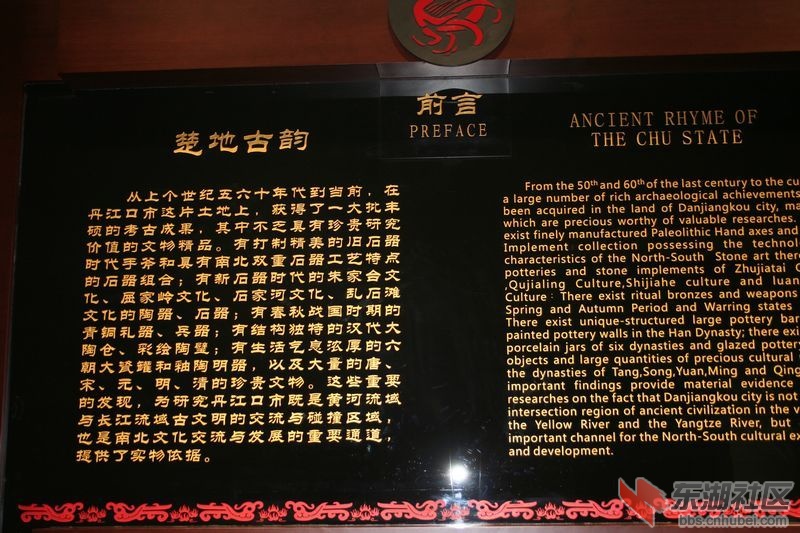 前言
PREFACE
楚地古韵
从上个世纪五六十年代到当前，在
丹江口市这片土地上，获得了一大批丰
硕的考古成果，其中不乏具有珍贵研究
价值的文物精品。有打制精美的旧石器
时代手斧和具有南北双重石器工艺特点
的石器组合；有新石器时代的朱家台文
化、屈家岭文化、石家河文化、乱石滩
文化的陶器、石器；有春秋战国时期的
青铜礼器、兵器；有结构独特的汉代大
陶仓、彩绘陶壁；有生活气息浓厚的六
朝大瓷罐和釉陶明器，以及大量的唐、
宋、元、明、清的珍贵文物。这些重要
的发现，为研究丹江口市既是黄河流域
与长江流域古文明的交流与碰撞区域，
也是南北文化交流与发展的重要通道，
提供了实物依据。
ANCIENT RHYME OF
THE CHU STATE
From the 50th and 60th of the last century to the cu
a large number of rich archaeological achievements
been acquired in the land of Danjiangkou city, ma
which are precious worthy of valuable researches.
exist finely manufactured Paleolithic Hand axes and
Implement collection possessing the technolo
characteristics of the North-South Stone art there
potteries and stone implements of Zhujiatai C
,Qujialing Culture,Shijiahe culture and luan
Culture : There exist ritual bronzes and weapons
Spring and Autumn Period and Warring states
There exist unique-structured large pottery bar
painted pottery walls in the Han Dynasty; there exi
porcelain jars of six dynasties and glazed pottery
objects and large quantities of precious cultural
the dynasties of Tang,Song,Yuan,Ming and Qing
important findings provide material evidence
researches on the fact that Danjiangkou city is not
intersection region of ancient civilization in the v
the Yellow River and the Yangtze River, but
important channel for the North-South cultural ex
and development.
东湖社区
bbs.cnhubei.com